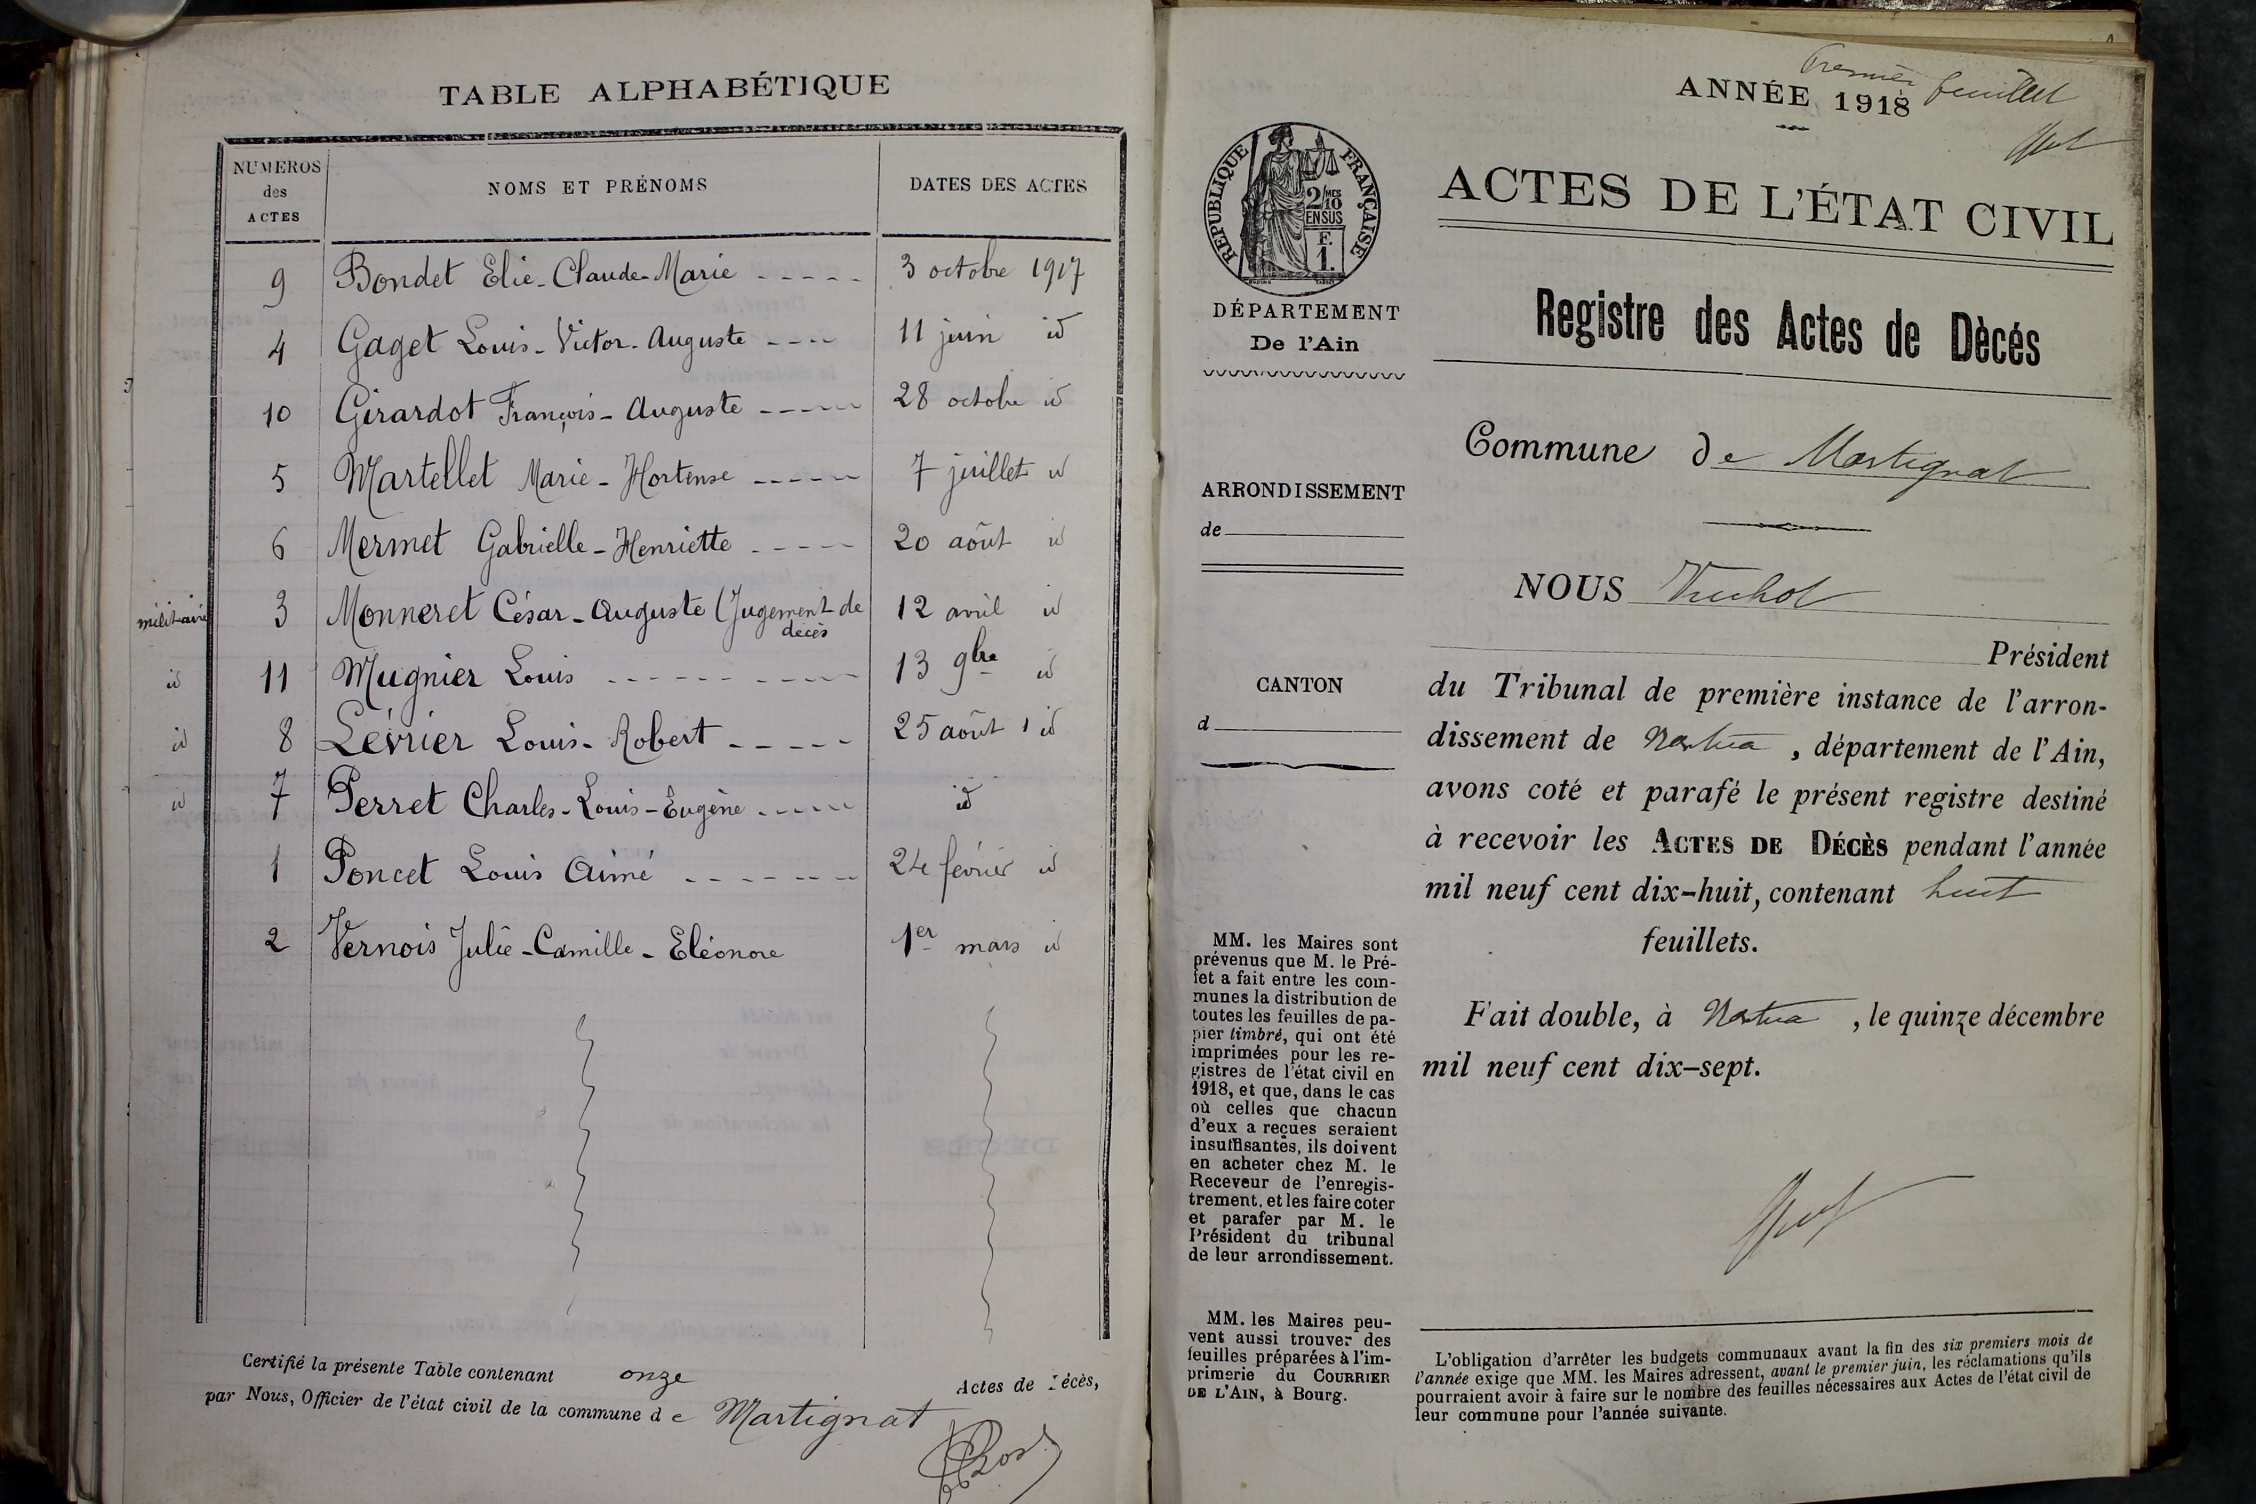 TABLE ALPHABÉTIQUE
NUMEROS des ACTES | NOMS ET PRÉNOMS | DATES DES ACTES
9 Bondet Elie-Claude-Marie 3 octobre 1917
4 Gaget Louis-Victor-Auguste 11 juin id
10 Girardot François-Auguste 28 octobre id
5 Martellet Marie-Hortense 7 juillet id
6 Mermet Gabrielle-Henriette 20 août id
militaire 3 Monneret César-Auguste (Jugement de décès 12 avril id
id 11 Mugnier Louis 13 9bre id
id 8 Lévrier Louis-Robert 25 août id
id 7 Perret Charles-Louis-Eugène id
1 Poncet Louis Aimé 24 février id
2 Vernois Julie-Camille-Eléonore 1er mars id
Certifié la présente Table contenant onze Actes de Décès,
par Nous, Officier de l'état civil de la commune de Martignat
Premier feuillet
ANNÉE 1918
RÉPUBLIQUE FRANÇAISE
2/10 MES
EN SUS
F.
1.
DÉPARTEMENT
De l'Ain
ARRONDISSEMENT
de
CANTON
d
MM. les Maires sont
prévenus que M. le Pré-
fet a fait entre les com-
munes la distribution de
toutes les feuilles de pa-
pier timbré, qui ont été
imprimées pour les re-
gistres de l'état civil en
1918, et que, dans le cas
où celles que chacun
d'eux a reçues seraient
insuffisantes, ils doivent
en acheter chez M. le
Receveur de l'enregis-
trement, et les faire coter
et parafer par M. le
Président du tribunal
de leur arrondissement.
MM. les Maires peu-
vent aussi trouver des
feuilles préparées à l'im-
primerie du COURRIER
DE L'AIN, à Bourg.
ACTES DE L'ÉTAT CIVIL
Registre des Actes de Dècés
Commune de Martignat
NOUS
Président
du Tribunal de première instance de l'arron-
dissement de Nantua, département de l'Ain,
avons coté et parafé le présent registre destiné
à recevoir les ACTES DE DÉCÈS pendant l'année
mil neuf cent dix-huit, contenant huit
feuillets.
Fait double, à Nantua, le quinze décembre
mil neuf cent dix-sept.
L'obligation d'arrêter les budgets communaux avant la fin des six premiers mois de
l'année exige que MM. les Maires adressent, avant le premier juin, les réclamations qu'ils
pourraient avoir à faire sur le nombre des feuilles nécessaires aux Actes de l'état civil de
leur commune pour l'année suivante.